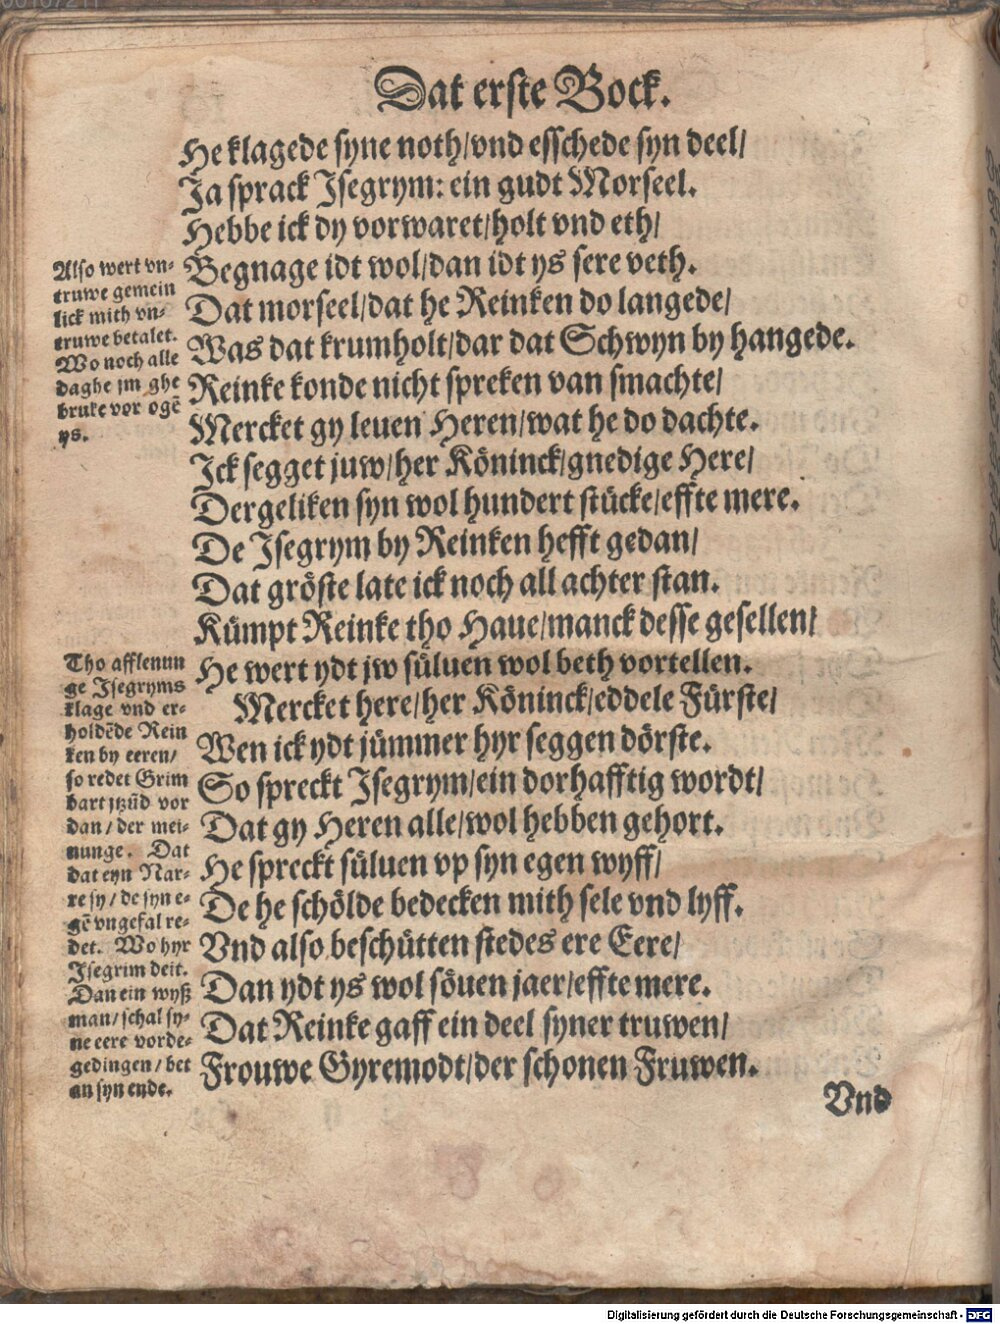 Dat erste Bock.
He klagede syne noth/vnd esschede syn deel/
Ja sprack Isegrym: ein gudt Morseel.
Hebbe ick dy vorwaret/holt vnd eth/
Begnage idt wol/dan idt ys sere veth.
Dat morseel/dat he Reinken do langede/
Was dat krumholt/dar dat Schwyn by hangede.
Reinke konde nicht spreken van smachte/
Mercket gy leuen Heren/wat he do dachte.
Ick segget juw/her Köninck/gnedige Here/
Dergeliken syn wol hundert stücke/effte mere.
De Isegrym by Reinken hefft gedan/
Dat gröste late ick noch all achter stan.
Kümpt Reinke tho Haue/manck desse gesellen/
He wert ydt jw süluen wol beth vortellen.
Mercket here/her Köninck/eddele Fürste/
Wen ick ydt jümmer hyr seggen dörste.
So spreckt Isegrym/ein dorhafftig wordt/
Dat gy Heren alle/wol hebben gehort.
He spreckt süluen vp syn egen wyff/
De he schölde bedecken mith sele vnd lyff.
Vnd also beschütten stedes ere Eere/
Dan ydt ys wol söuen jaer/effte mere.
Dat Reinke gaff ein deel syner truwen/
Frouwe Gyremodt/der schonen Fruwen.
Vnd
Also wert vn-
truwe gemein
lick mith vn-
truwe betalet.
Wo noch alle
daghe jm ghe
bruke vor ogē
ys.
Tho afflenun
ge Isegryms
klage vnd er-
holdēde Rein
ken by eeren/
so redet Grim
bart jtzūd vor
dan/der mei-
nunge. Dat
dat eyn Nar-
re sy/de syn e-
gē vngefal re-
det. Wo hyr
Isegrim deit.
Dan ein wyß
man/schal sy-
ne eere vorde-
gedingen/bet
an syn ende.
Digitalisierung gefördert durch die Deutsche Forschungsgemeinschaft - DFG